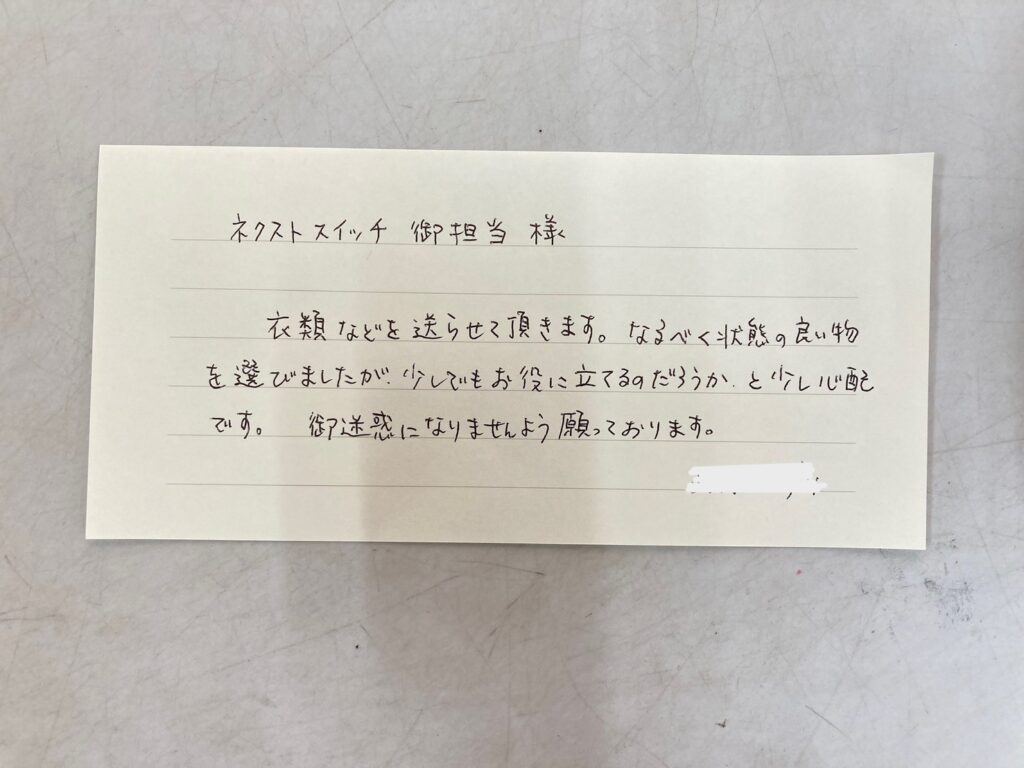 ネクストスイッチ 御担当 様
衣類などを送らせて頂きます。なるべく状態の良い物
を選びましたが、少しでもお役に立てるのだろうか、と少し心配
です。 御迷惑になりませんよう願っております。